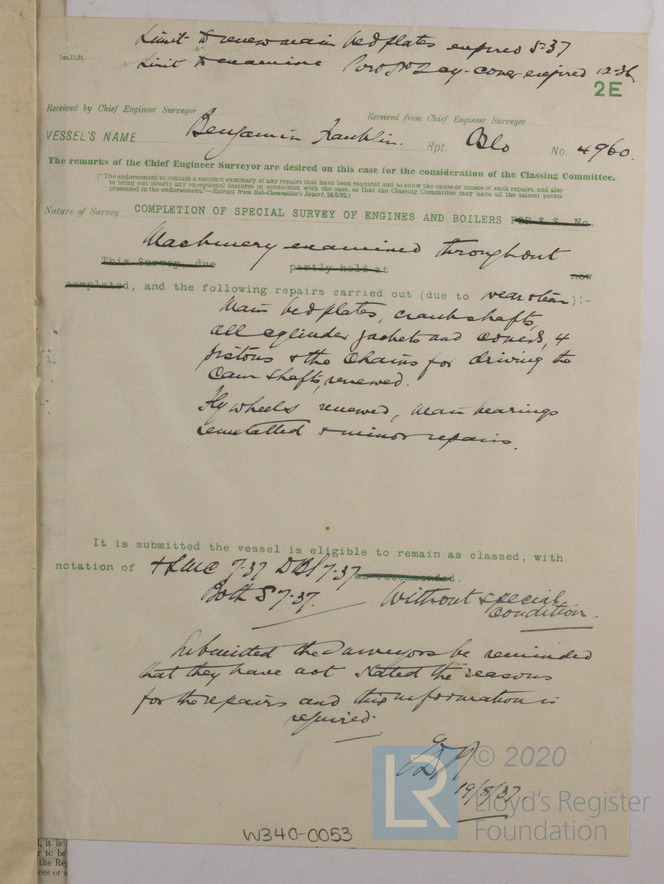 Limit to renew main bedplates expired 5-37
Limit to examine Port & Day-cover expired 12-36
2E
Received by Chief Engineer Surveyor
Received from Chief Engineer Surveyor
VESSEL'S NAME Benjamin Franklin. Rpt. Oslo No. 4960.
The remarks of the Chief Engineer Surveyor are desired on this case for the consideration of the Classing Committee.
(* The endorsement to contain a succinct summary of any repairs that have been required and to show the cause or causes of such repairs, and also
to bring out clearly any exceptional features in connection with the case, so that the Classing Committee may have all the salient points
presented in the endorsement."—Extract from Sub-Committee's Report, 24/5/92.)
Nature of Survey COMPLETION OF SPECIAL SURVEY OF ENGINES AND BOILERS FOR S.S. No.
Machinery examined throughout
This Survey, due partly held at now
completed, and the following repairs carried out (due to wear & tear):-
Main bedplates, crankshafts,
all cylinder jackets and covers, 4
pistons & the chains for driving the
cam shafts, renewed.
Fly wheels renewed, main bearings
remetalled & minor repairs.
It is submitted the vessel is eligible to remain as classed, with
notation of +LMC 7·37 DBS 7·37 as recommended.
Both S 7·37. Without special
condition.
Submitted the Surveyors be reminded
that they have not stated the reasons
for the repairs and this information is
required.
19/8/37
W340-0053
LR © 2020
Lloyd's Register
Foundation